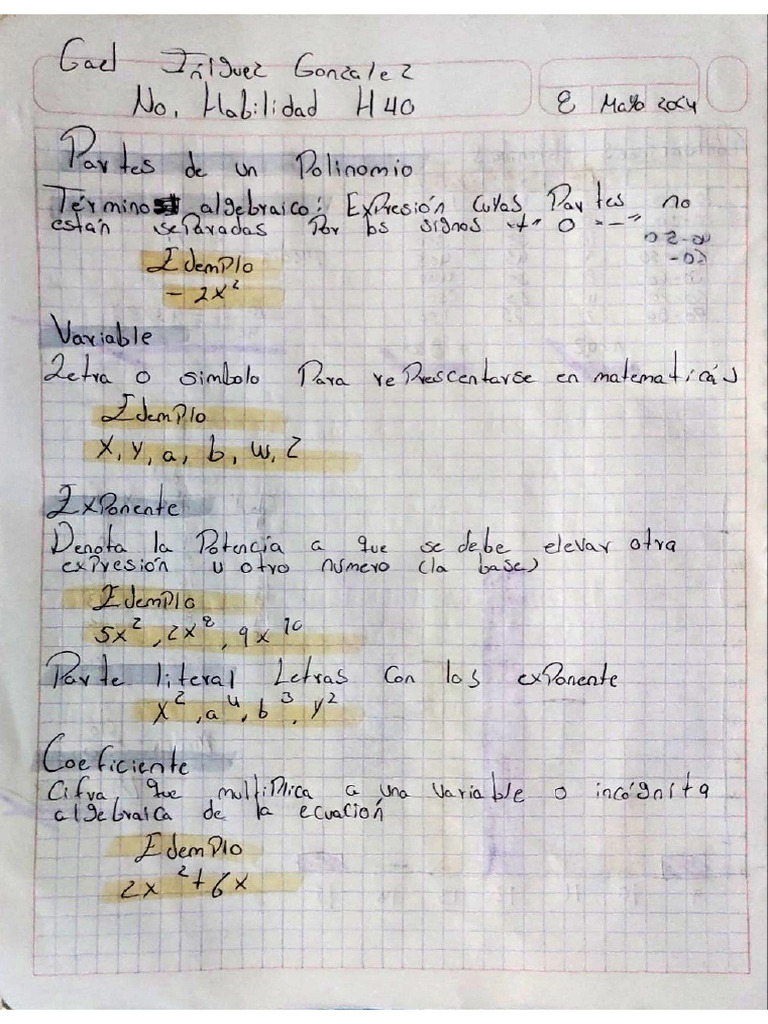 Gael Iñiguez Gonzalez
No. Habilidad H40
8 Mayo 2024
Partes de un Polinomio
Término algebraico: Expresión cuyas Partes no
están separadas Por los signos "+" o "-"
Ejemplo
- 2x²
Variable
Letra o simbolo Para represcentarse en matematicás
Ejemplo
x, y, a, b, w, z
Exponente
Denota la Potencia a que se debe elevar otra
expresión u otro número (la base)
Ejemplo
5x², 2x⁸, 9x¹⁰
Parte literal Letras con los exponente
x², a⁴, b³, y²
Coeficiente
Cifra que multiplica a una variable o incógnita
algebraica de la ecuación
Ejemplo
2x² + 6x